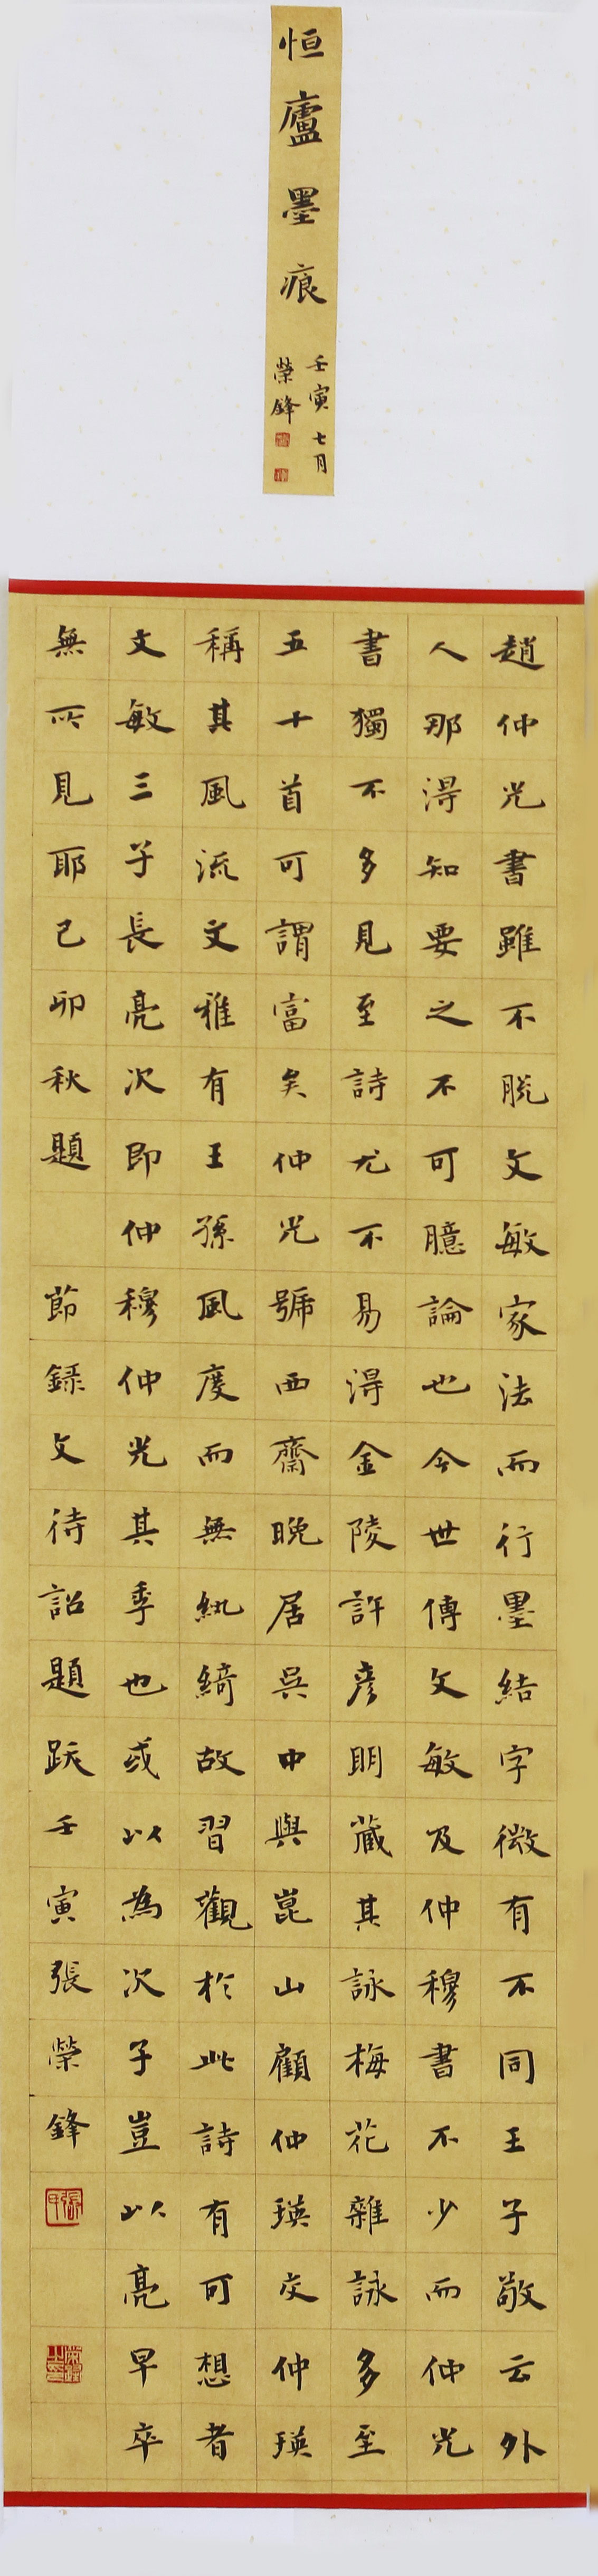 恒廬墨痕
壬寅七月
榮鋒
趙仲光書雖不脫文敏家法而行墨結字微有不同王子敬云外
人那得知要之不可臆論也今世傳文敏及仲穆書不少而仲光
書獨不多見至詩尤不易得金陵許彥明藏其詠梅花雜詠多至
五十首可謂富矣仲光號西齋晚居吳中與崑山顧仲瑛交仲瑛
稱其風流文雅有王孫風度而無紈綺故習觀於此詩有可想者
文敏三子長亮次即仲穆仲光其季也或以為次子豈以亮早卒
無所見耶己卯秋題 節錄文待詔題跋壬寅張榮鋒